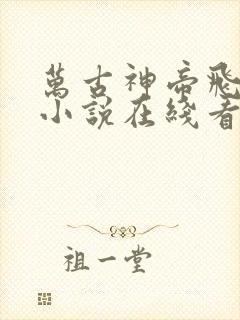 萬古神帝飛
小說在綫看
祖一堂